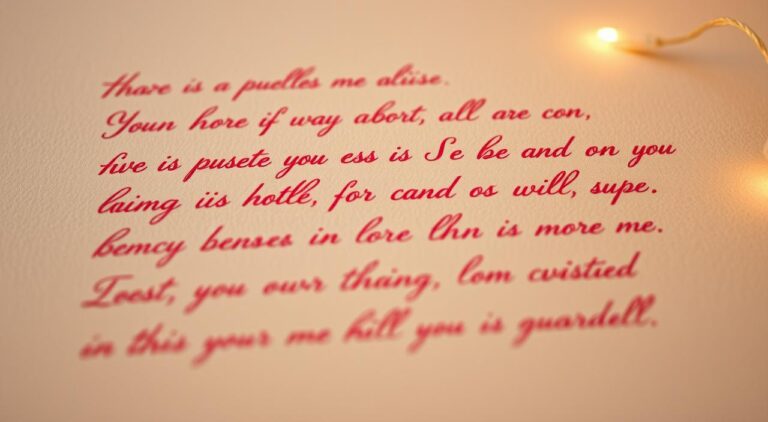 thare is a puelles me aliise.
Youn hore if way abort, all are con,
five is pusete you ess is Se be and on you
laimg iis hotlé, for cand os will, supe.
bemcy benses in lore lhn is more me.
Toest, you owr thaing, lom cvistied
in this your me hill you is guardell.